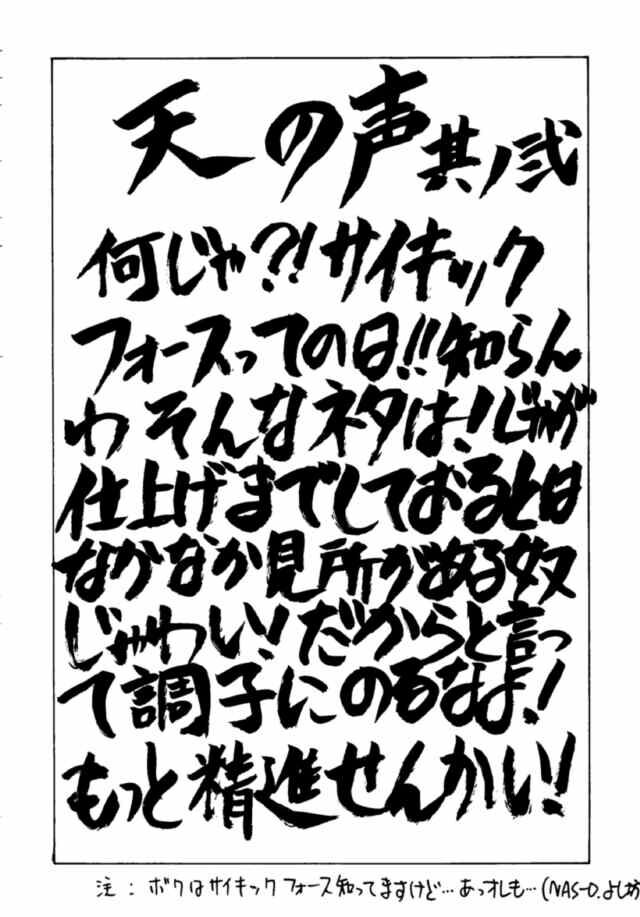 天の声 其ノ弐
何じゃ?!サイキック
フォースっての日!!知らん
わ そんなネタは!じゃが
仕上げまでしておるとは
なかなか見所がある奴
じゃわい!だからと言っ
て調子にのるなよ!
もっと精進せんかい!
注:ボクはサイキックフォース知ってますけど…あっオレも…(NAS-O.よしかわ